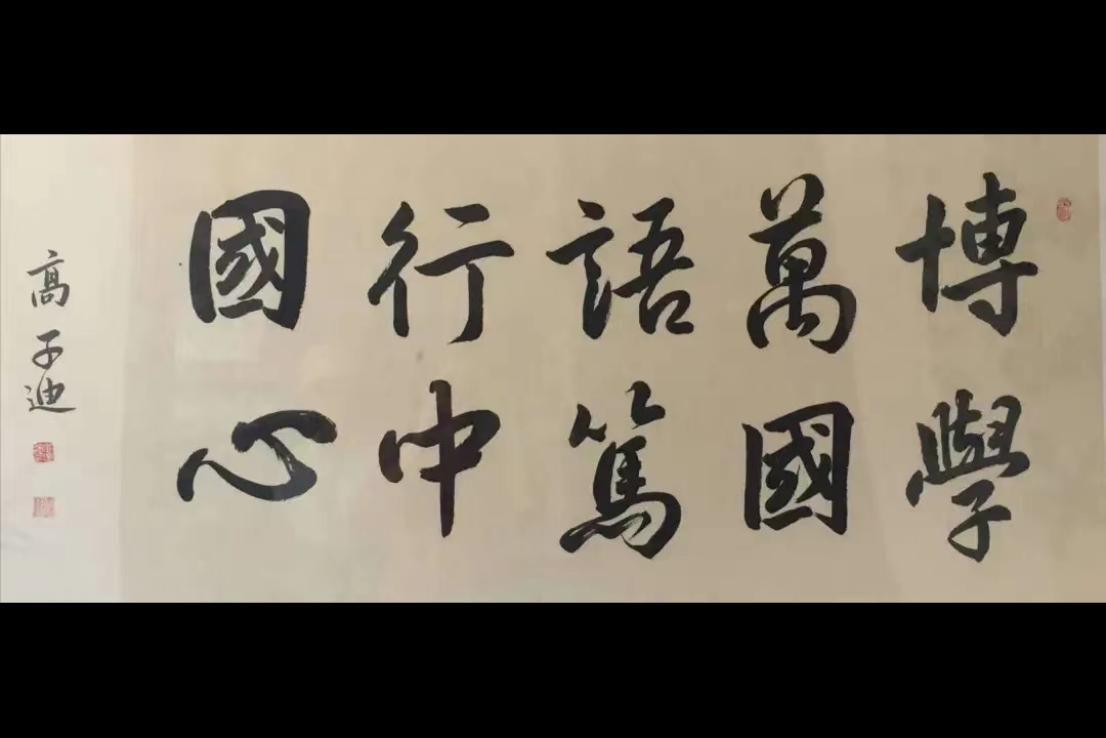 博學
萬國
語篤
行中
國心
高子迪